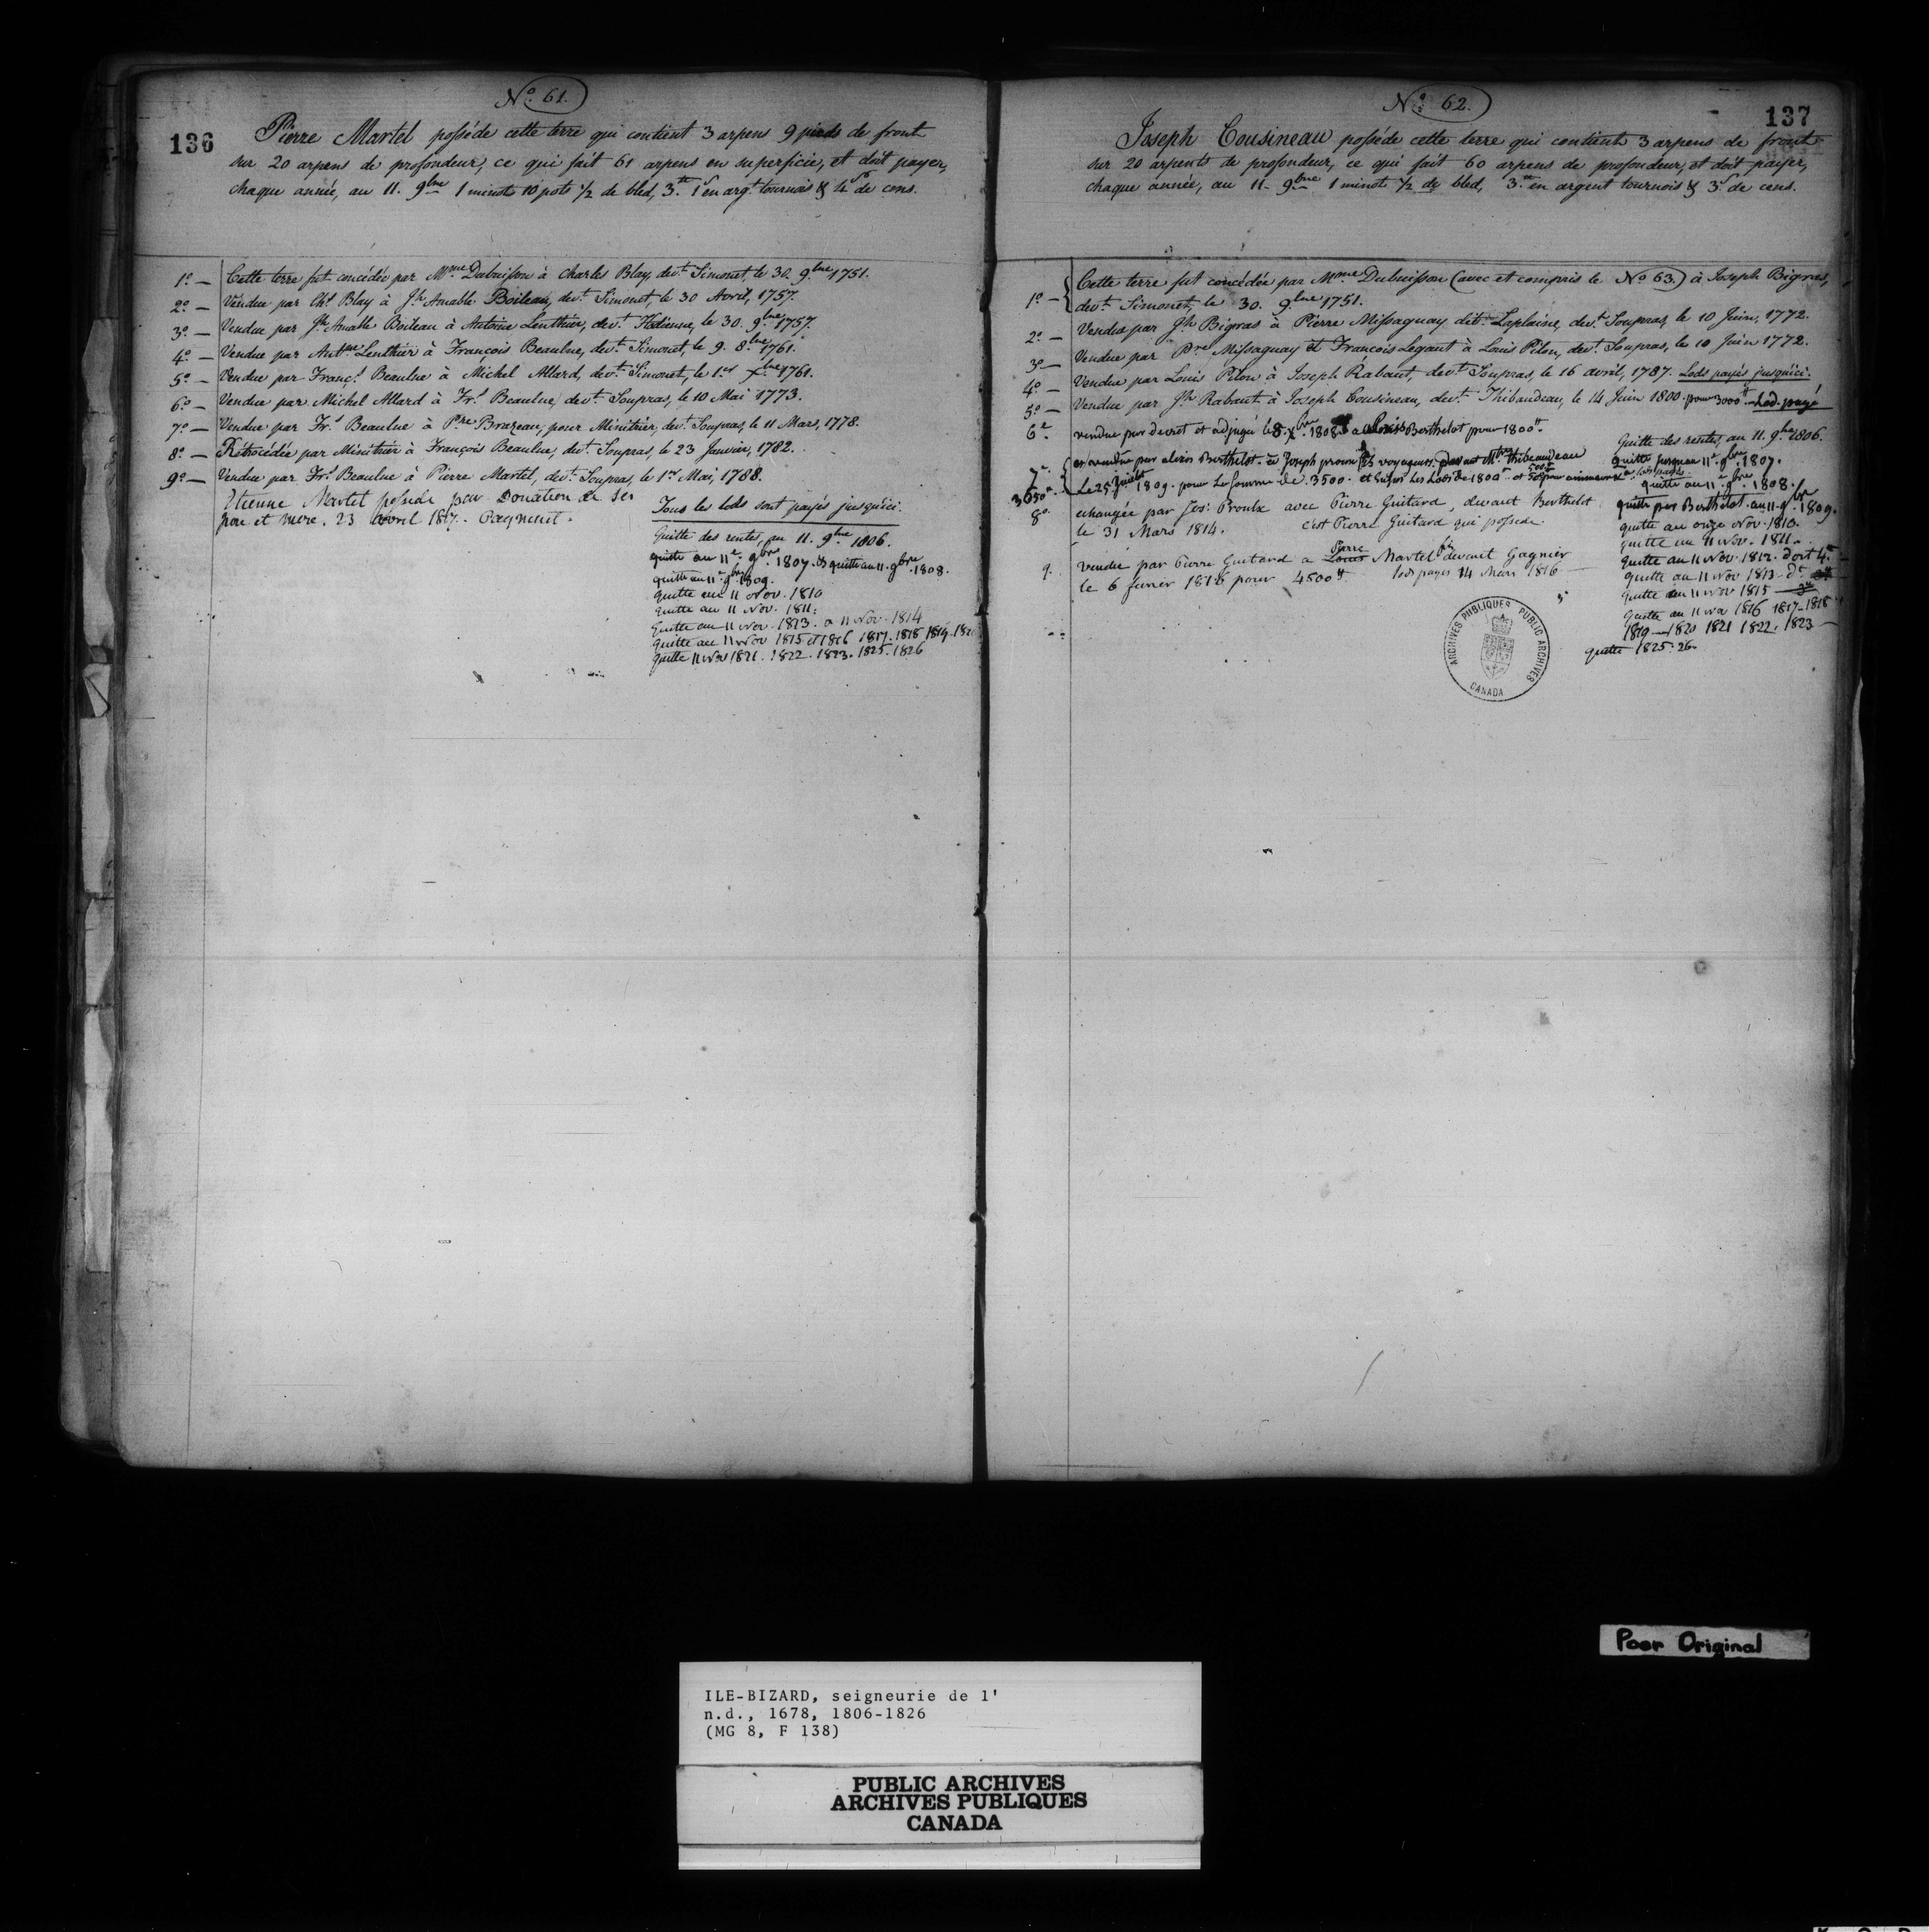 No. 61.
136
Pierre Martel posséde cette terre qui contient 3 arpens 9 pieds de front
sur 20 arpens de profondeur, ce qui fait 61 arpens en superficie, et doit payer,
chaque année, au 11. 9bre 1 minot 10 pots 1/2 de bled, 3.tt 1s en argt tournois & 4 de cens.
1o — Cette terre fut concédée par Mme Dubuisson à Charles Blay, devt Simonet, le 30. 9bre 1751.
2o — Vendue par Chs Blay à Jh Amable Boileau, devt Simonet, le 30 Avril, 1757.
3o — Vendue par Jh Amable Boileau à Antoine Lenthier, devt Hodienne, le 30. 9bre 1757.
4o — Vendue par Antne Lenthier à François Beaulne, devt Simonet, le 9. 8bre 1761.
5o — Vendue par Françs Beaulne à Michel Allard, devt Simonet, le 1er Xbre 1761.
6o — Vendue par Michel Allard à Frs Beaulne, devt Soupras, le 10 Mai 1773.
7o — Vendue par Frs Beaulne à Pre Brazeau, pour Minitrier, devt Soupras, le 11 Mars, 1778.
8o — Rétrocédée par Minitrier à François Beaulne, devt Soupras, le 23 Janvier, 1782.
9o — Vendue par Frs Beaulne à Pierre Martel, devt Soupras, le 1er Mai, 1788.
Etienne Martel possede par Donation de ses
pere et mere. 23 avril 1817. Payment.
Tous les lods sont payés jusqu'ici.
Quitte des rentes, au 11. 9bre 1806.
quitte au 11e 9bre 1807. & quitte au 11. 9bre 1808.
quitte au 11e 9bre 1809.
quitte au 11 Nov. 1810
quitte au 11 Nov. 1811.
Quitte au 11 Nov. 1813. a 11 Nov. 1814
quitte au 11 Nov 1815 et 1816 1817. 1818 1819. 1820
quitte 11 Nov 1821. 1822. 1823. 1825. 1826
No. 62.
137
Joseph Cousineau posséde cette terre qui contient 3 arpens de front
sur 20 arpents de profondeur, ce qui fait 60 arpens de profondeur, et doit payer,
chaque année, au 11. 9bre 1 minot 1/2 de bled, 3.tt en argent tournois & 3s de cens.
1o — Cette terre fut concédée par Mme Dubuisson (avec et compris le No 63.) à Joseph Bigras,
devt Simonet, le 30. 9bre 1751.
2o — Vendue par Jh Bigras à Pierre Missaguay dit Laplaine, devt Soupras, le 10 Juin, 1772.
3o — Vendue par Pre Missaguay et François Legaut à Louis Pilon, devt Soupras, le 10 Juin 1772.
4o — Vendue par Louis Pilon à Joseph Rabaut, devt Soupras, le 16 avril, 1787. Lods payés jusqu'ici.
5o — Vendue par Jh Rabaut à Joseph Cousineau, devt Thibaudeau, le 14 Juin 1800. pour 3000tt Lod. payé
6e. vendue par decret et adjugé le 8. Xbre 1808 a Berthelot pour 1800tt.
7e Berthelot à Joseph voyageurs, devant Mtre thibeaudeau
Le 25 Juillet 1809. pour La Somme de 3500. et
3050tt
8o. echangée par Jos: Proulx avec Pierre Guitard, devant Berthelot
le 31 Mars 1814. c'est Pierre Guitard qui possede
9. vendue par Pierre Guitard a Louis Pierre Martel fils devant Gagnier
le 6 fevrier 1816 pour 4500tt lods payés 14 Mars 1816
Quitte des rentes, au 11. 9bre 1806.
quitte jusqu'au 11e 9bre 1807.
quitte au 11e 9bre 1808.
quitte par Berthelot au 11e 9bre 1809.
quitte au onze Nov. 1810.
quitte au 11 Nov. 1811.
quitte au 11 Nov. 1812. doit 4tt
quitte au 11 Nov 1813
quitte au 11 Nov 1815
Quitte au 11 Nov 1816 1817-1818
1819 — 1820 1821 1822. 1823
quitte 1825. 26.
ARCHIVES PUBLIQUES PUBLIC ARCHIVES
CANADA
Poor Original
ILE-BIZARD, seigneurie de l'
n.d., 1678, 1806-1826
(MG 8, F 138)
PUBLIC ARCHIVES
ARCHIVES PUBLIQUES
CANADA